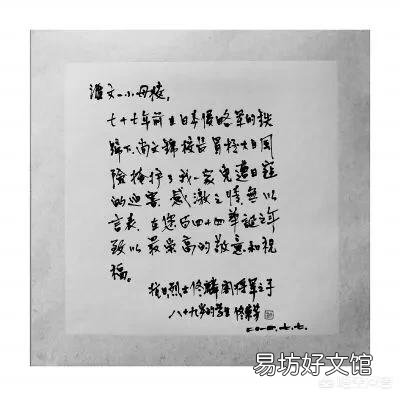 潍文一小母校,
七十七年前在日本侵略军的铁
蹄下,尚文锦校长冒极大风
险掩护了我一家免遭日寇
的迫害。感激之情无以
言表。在您百四十四华诞之年
致以最崇高的敬意和祝
福。
抗日烈士佟麟阁将军之子
八十九岁的学生佟
易坊好文馆